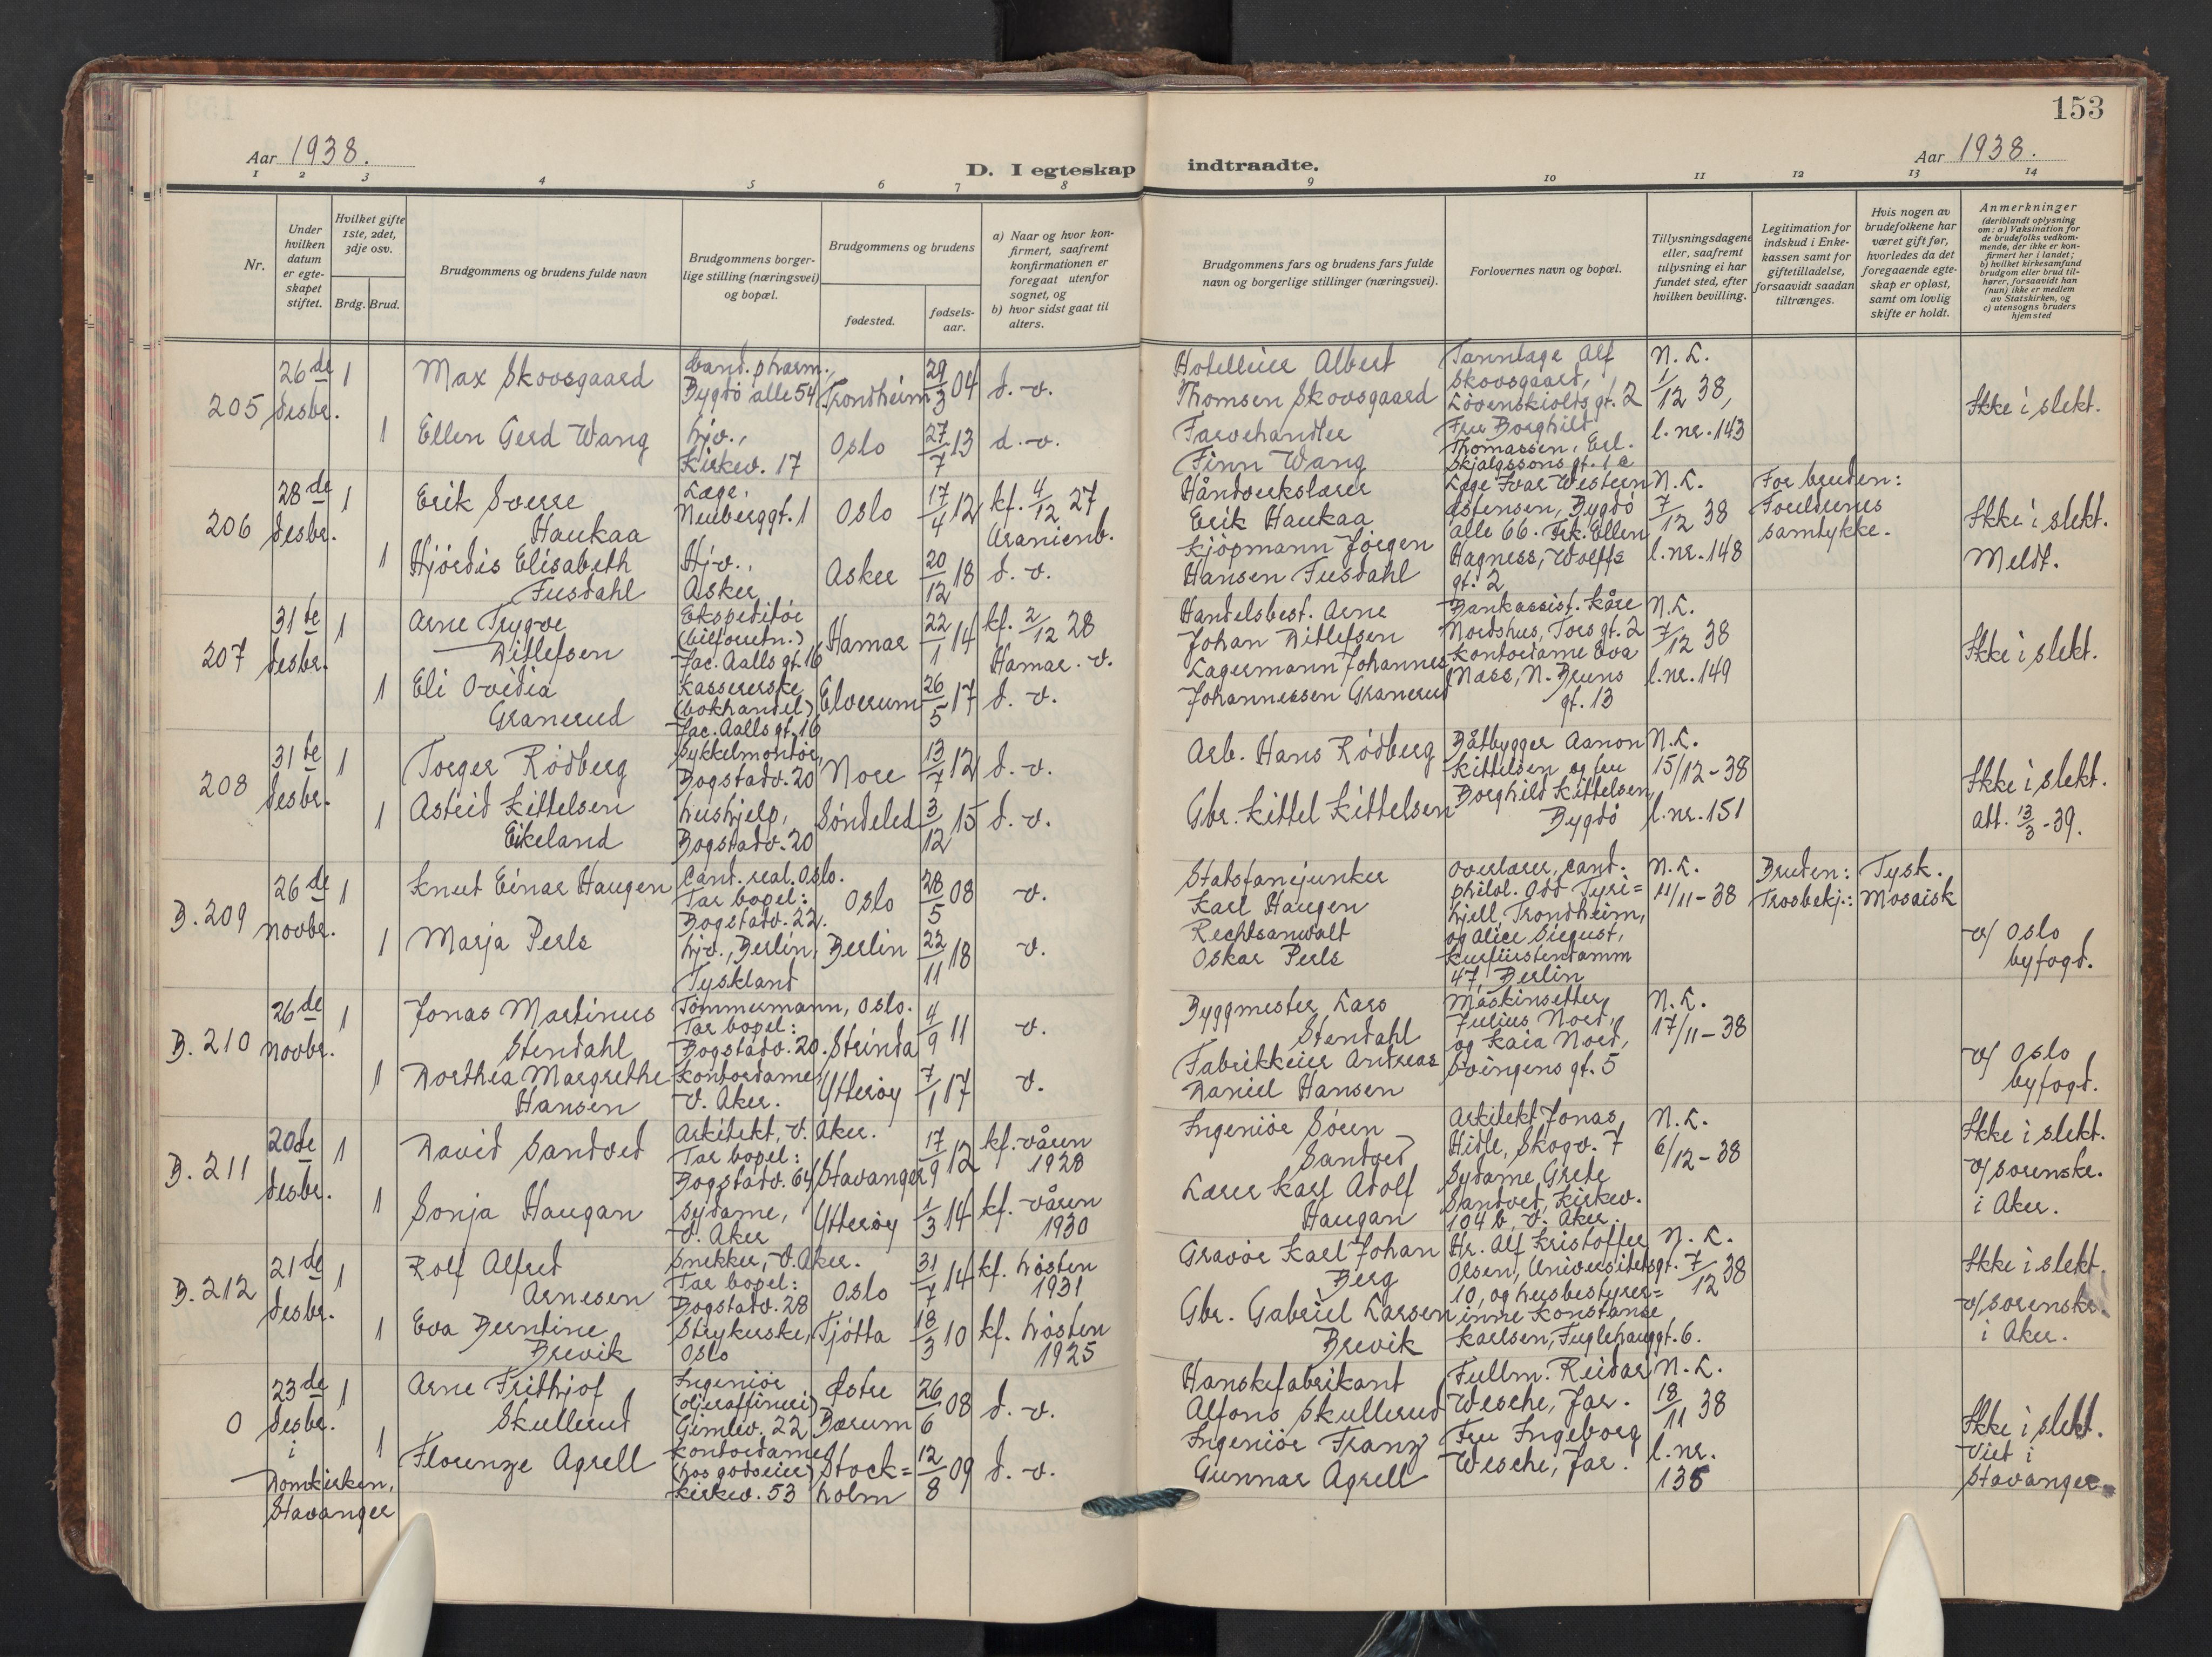 153
Aar 1938.
D. I egteskap indtraadte.
Aar 1938.
1 2 3 4 5 6 7 8 9 10 11 12 13 14
Nr.
Under hvilken datum er egteskapet stiftet.
Hvilket gifte 1ste, 2det, 3dje osv.
Brdg. Brud.
Brudgommens og brudens fulde navn
Brudgommens borgerlige stilling (næringsvei) og bopæl.
Brudgommens og brudens
fødested.
fødselsaar.
a) Naar og hvor konfirmert, saafremt konfirmationen er foregaat utenfor sognet, og
b) hvor sidst gaat til alters.
Brudgommens fars og brudens fars fulde navn og borgerlige stillinger (næringsvei).
Forlovernes navn og bopæl.
Tillysningsdagene eller, saafremt tillysning ei har fundet sted, efter hvilken bevilling.
Legitimation for indskud i Enkekassen samt for giftetilladelse, forsaavidt saadan tiltrænges.
Hvis nogen av brudefolkene har været gift før, hvorledes da det foregaaende egteskap er opløst, samt om lovlig skifte er holdt.
Anmerkninger
(deriblandt oplysning om: a) Vaksination for de brudefolks vedkommende, der ikke er konfirmert her i landet; b) hvilket kirkesamfund brudgom eller brud tilhører, forsaavidt han (hun) ikke er medlem av Statskirken, og c) utensogns bruders hjemsted
205
26de desbr.
1 Max Skovsgaard
Cand. pharm., Bygdö alle 54
Trondheim
29/3 04
d. v.
Hotelleier Albert Thomsen Skovsgaard
Tannlæge Alf Skovsgaard, Lövenskiolds gt. 2
N. L. 1/12 38, l. nr. 143
Ikke i slekt.
1 Ellen Gerd Wang
hjv., Kirkev. 17
Oslo
27/7 13
d. v.
Farvehandler Finn Wang
Fru Borghild Thomassen, Erl. Skjalgssons gt. 1 c
206
28de desbr.
1 Erik Sverre Haukaa
Læge, Neuberggt. 1
Oslo
17/4 12
kf. 4/12 27 Uranienb.
Håndverkslærer Erik Haukaa
Læge Ivar Western Østensen, Bygdö alle 66. Frk. Ellen Hagness, Wolffs gt. 2
N. L. 7/12 38 l. nr. 148
For bruden: Foreldrenes samtykke.
Ikke i slekt. Meldt.
1 Hjördis Elisabeth Fusdahl
Hjv., Asker
Asker
20/12 18
d. v.
Kjöpmann Jörgen Hansen Fusdahl
207
31te desbr.
1 Arne Trygve Ditlefsen
Ekspeditör (bilforretn.) Jac. Aalls gt. 16
Hamar
22/1 14
kf. 2/12 28 Hamar. v.
Handelsbest. Arne Johan Ditlefsen
Bankassist. Kåre Nordshus, Tors gt. 2 Kontordame Eva Næss, N. Bruns gt. 13
N. L. 7/12 38 l. nr. 149
Ikke i slekt.
1 Eli Ovidia Granerud
Kassererske (bokhandel) Jac. Aalls gt. 16
Elverum
26/5 17
d. v.
Lagermann Johannes Johannessen Granerud
208
31te desbr.
1 Torger Rödberg
Sykkelmontör, Bogstadv. 20
Nore
13/7 12
d. v.
Arb. Hans Rödberg
Båtbygger Aanon Kittelsen og fru Borghild Kittelsen, Bygdö
N. L. 15/12-38 l. nr. 151
Ikke i slekt. Att. 13/3-39.
1 Astrid Kittelsen Eikeland
hushjelp, Bogstadv. 20
Söndeled
3/12 15
d. v.
Gbr. Kittel Kittelsen
B. 209
26de novbr.
1 Knut Einar Haugen
Cand. real. Oslo. Tar bopel: Bogstadv. 22.
Oslo
28/5 08
v.
Stabsfanejunker Karl Haugen
Overlærer, cand. philol. Odd Tyrihjell, Trondheim, og Alice Siegust, Kurfürstendamm 47, Berlin
N. L. 11/11-38
Bruden: Tysk.
Trosbekj.: Mosaisk
v/ Oslo byfogd.
1 Marja Perls
hjv., Berlin, Tyskland
Berlin
22/11 18
v.
Rechtsanwalt Oskar Perls
B. 210
26de novbr.
1 Jonas Martinus Stendahl
Tömmermann, Oslo. Tar bopel: Bogstadv. 20.
Strinda
4/9 11
v.
Byggmester Lars Stendahl
Maskinsetter Julius Nord, og Kaia Nord, Svingens gt. 5
N. L. 17/11-38
v/ Oslo byfogd.
1 Dorthea Margrethe Hansen
Kontordame, V. Aker.
Ytteröy
7/1 17
v.
Fabrikkeier Andreas Daniel Hansen
B. 211
20de desbr.
1 David Sandved
Arkitekt, V. Aker. Tar bopel: Bogstadv. 64
Stavanger
17/9 12
kf. våren 1928
Ingeniör Sören Sandved
Arkitekt Jonas Hidle, Skogv. 7 Sydame Grete Sandved, Kirkev. 104 b, V. Aker.
N. L. 6/12-38
Ikke i slekt. v/ sorenskr. i Aker.
1 Sonja Haugan
Sydame, V. Aker
Ytteröy
1/3 14
kf. våren 1930
Lærer Karl Adolf Haugan
B. 212
21de desbr.
1 Rolf Alfred Arnesen
Snekker, V. Aker. Tar bopel: Bogstadv. 28
Oslo
31/7 14
kf. hösten 1931
Gravör Karl Johan Berg
Hr. Alf Kristoffer Olsen, Universitetsgt. 10, og husbestyrerinne Konstanse Karlsen, Fuglehauggt. 6.
N. L. 7/12 38
Ikke i slekt. v/ sorenskr. i Aker.
1 Eva Berntine Brevik
Strykerske, Oslo
Tjötta
18/3 10
kf. hösten 1925
Gbr. Gabriel Larsen Brevik
0
23de desbr. i Domkirken, Stavanger
1 Arne Frithjof Skullerud
Ingeniör (oljeraffineri) Gimlev. 22
Östre Bærum
26/6 08
d. v.
Hanskefabrikant Alfons Skullerud
Fullm. Reidar Wesche, Jar. Fru Ingeborg Wesche, Jar.
N. L. 18/11 38 l. nr. 135
Ikke i slekt. Viet i Stavanger
1 Florenze Agrell
Kontordame (hos godseier) Kirkev. 53
Stockholm
12/8 09
d. v.
Ingeniör Franz Gunnar Agrell